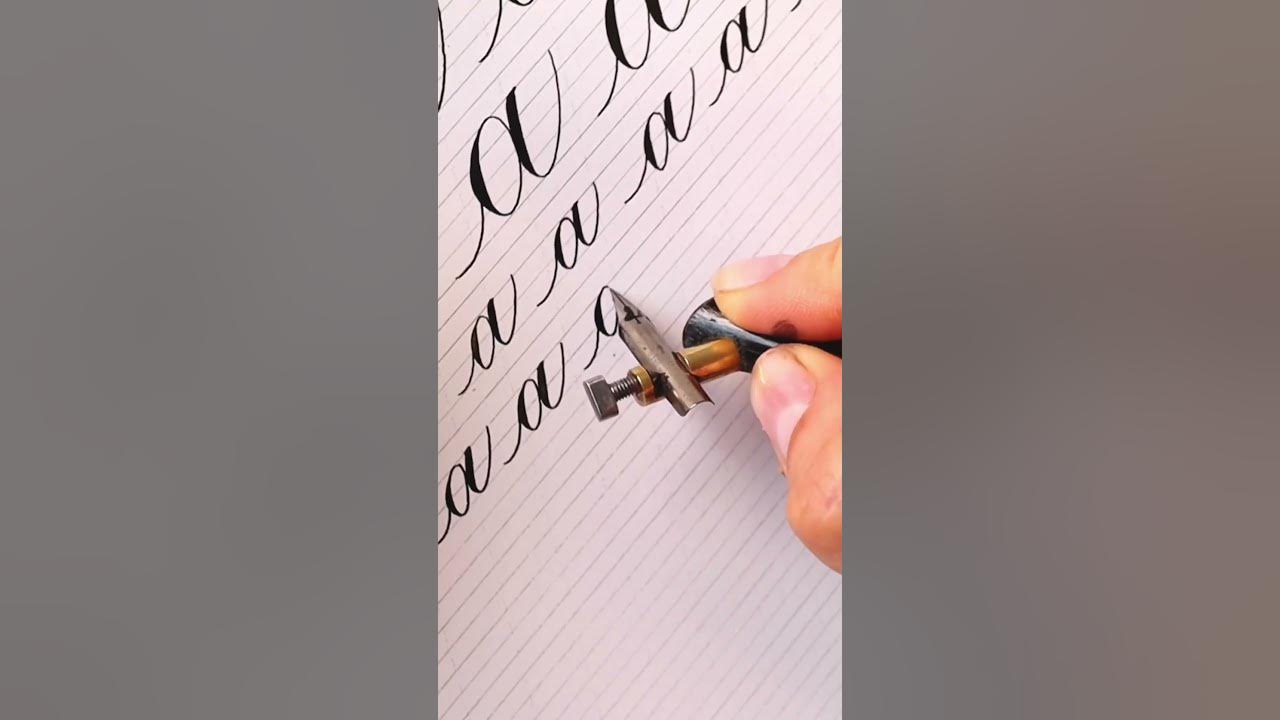 a a
a a a a
a a a